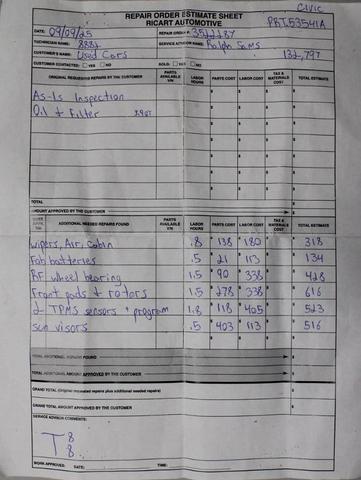 CIVIC
REPAIR ORDER ESTIMATE SHEET
RICART AUTOMOTIVE
PRT53541A
DATE: 09/09/25 REPAIR ORDER #: 3522287
TECHNICIAN NAME: 8886 SERVICE ADVISOR NAME: Ralph Sams
CUSTOMER'S NAME: Used Cars 132,797
CUSTOMER CONTACTED: YES NO SOLD: YES NO
ORIGINAL REQUESTED REPAIRS BY THE CUSTOMER PARTS AVAILABLE Y/N LABOR HOURS PARTS COST LABOR COST TAX & MATERIALS COST TOTAL ESTIMATE
As-Is Inspection
Oil & Filter
TOTAL
AMOUNT APPROVED BY THE CUSTOMER
ADDITIONAL NEEDED REPAIRS FOUND PARTS AVAILABLE Y/N LABOR HOURS PARTS COST LABOR COST TAX & MATERIALS COST TOTAL ESTIMATE
wipers, Air, Cabin .8 $138 $180 $318
Fob batteries .5 $21 $113 $134
RF wheel bearing 1.5 $90 $338 $428
Front pads & rotors 1.5 $278 $338 $616
2 TPMS sensors + program 1.8 $118 $405 $523
sun visors .5 $403 $113 $516
TOTAL ADDITIONAL REPAIRS FOUND
TOTAL ADDITIONAL AMOUNT APPROVED BY THE CUSTOMER
GRAND TOTAL (Original requested repairs plus additional needed repairs) $
GRAND TOTAL AMOUNT APPROVED BY THE CUSTOMER $
SERVICE ADVISOR COMMENTS:
T 8
8
WORK APPROVED: DATE: TIME: